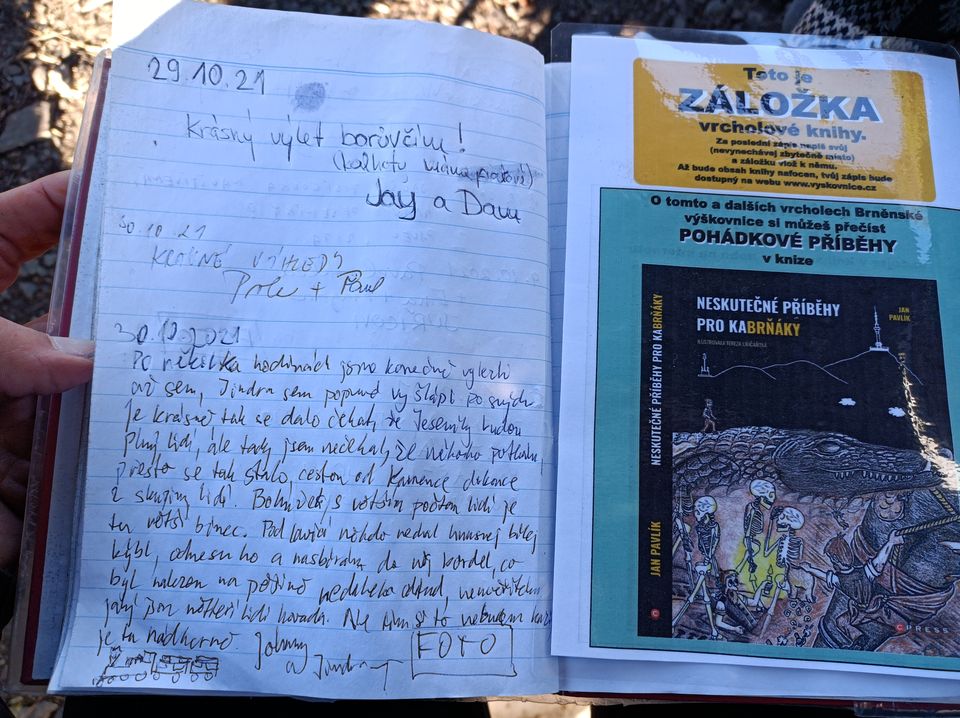 29.10.21
Krásný výlet borůvčím!
Jay a Dam
30.10.21
KRÁSNÉ VÝHLEDY
30.10.2021
Po několika hodinách jsme konečně vylezli
až sem, Jindra sem poprvé vyšlápl po svých
je krásně tak se dalo čekat, že Jeseníky budou
plný lidí, ale tady jsem nečekal, že někoho potkám,
přesto se tak stalo, cestou od Kamence dokonce
2 skupiny lidí. Bohužel, s větším počtem lidí je
tu větší binec. Pod lavicí někdo nechal hnusnej bílej
kýbl, odnesu ho a nasbírám do něj bordel, co
byl nalezen na pěšině nedaleko odtud,
jaký jsou někteří lidi hovada. Ale tím si to nebudem kazit
je tu nádherně Johnny
a Jindra
FOTO
Toto je
ZÁLOŽKA
vrcholové knihy.
Za poslední zápis napiš svůj
(nevynechávej zbytečně místo)
a záložku vlož k němu.
Až bude obsah knihy nafocen, tvůj zápis bude
dostupný na webu www.vyskovnice.cz
O tomto a dalších vrcholech Brněnské
výškovnice si můžeš přečíst
POHÁDKOVÉ PŘÍBĚHY
v knize
NESKUTEČNÉ PŘÍBĚHY
PRO KABRŇÁKY
JAN
PAVLÍK
JAN PAVLÍK NESKUTEČNÉ PŘÍBĚHY PRO KABRŇÁKY
C PRESS